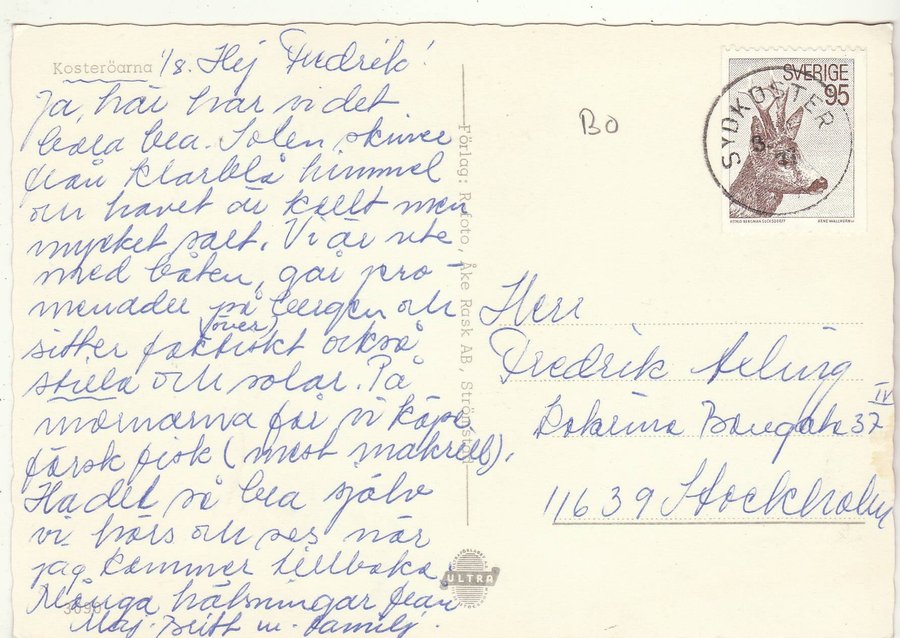 Kosteröarna 1/8. Hej Fredrik!
Ja, här har vi det
bara bra. Solen skiner
från klarblå himmel
och havet är kallt men
mycket salt. Vi är ute
med båten, går pro-
menader på bergen och
(över)
sitter faktiskt också
stilla och solar. På
mornarna får vi köpa
färsk fisk (mest makrill).
Ha det så bra själv
vi hörs och ses när
jag kommer tillbaka.
Många hälsningar från
Maj-Britt m. familj.
3690
Förlag: Refoto, Åke Rask AB, Strömstad
ULTRA
BO
SVERIGE
95
SYDKOSTER
Herr
Fredrik
Katarina Bangata 37 IV
11639 Stockholm